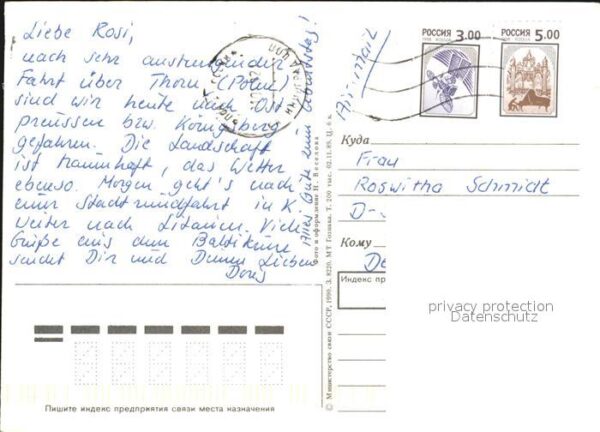 Liebe Rosi,
nach sehr anstrengender
Fahrt über Thorn (Polen)
sind wir heute nach Ost-
preussen bzw. Königsberg
gefahren. Die Landschaft
ist traumhaft, das Wetter
ebenso. Morgen geht's nach
einer Stadtrundfahrt in K.
weiter nach Litauen. Viele
Grüße aus dem Baltikum
sendet Dir und Deinen Lieben
Doris
Alles Gute zum Geburtstag!
Пишите индекс предприятия связи места назначения
© Министерство связи СССР, 1990. З. 8220. МТ Гознака. Т. 200 тыс. 02.11.89. Ц. 6 к.
Фото и оформление Н. Веселова
Air mail
РОССИЯ 3.00
РОССИЯ 5.00
Куда
Frau
Roswitha Schmidt
D-
Кому
Индекс пр
privacy protection
Datenschutz